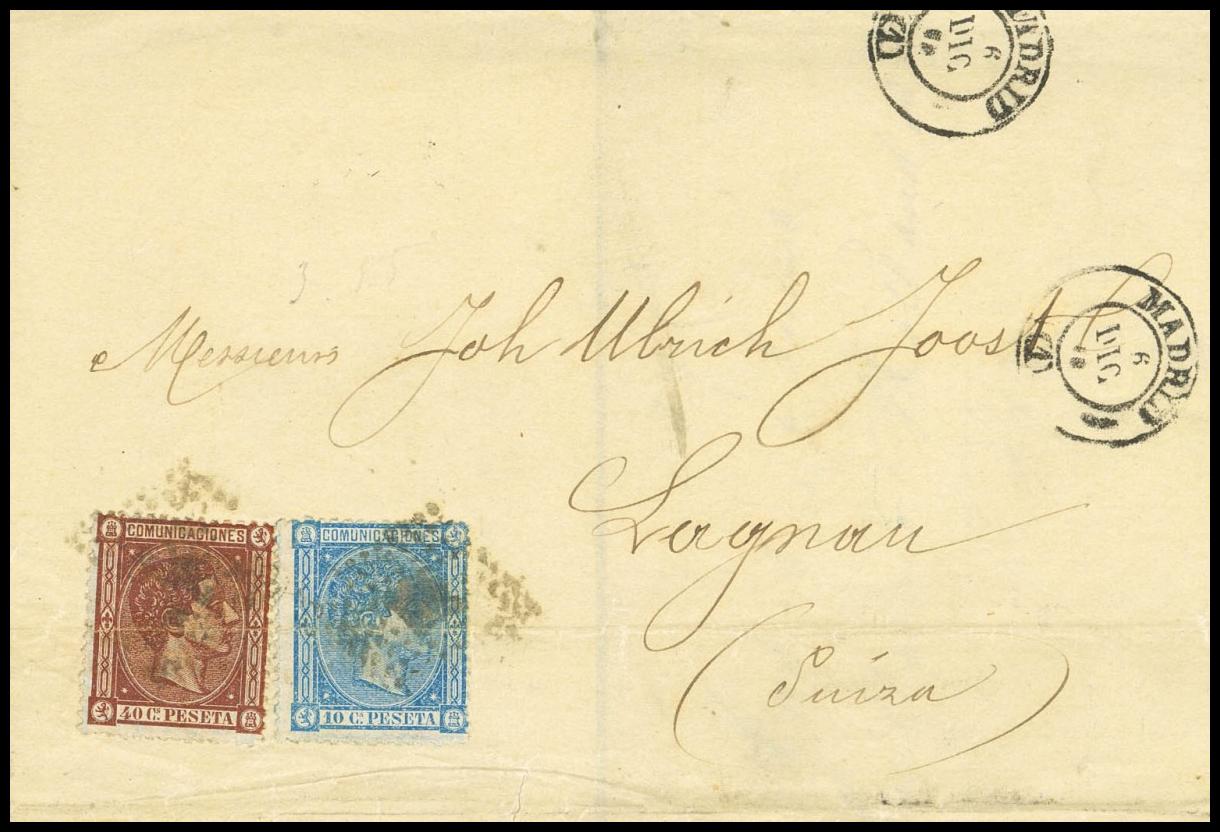 MADRID
6
DIC
Messieurs Joh Ulrich Joost
MADRID
6
DIC
Lagnau
(Suiza)
COMUNICACIONES
40 Cs PESETA
COMUNICACIONES
10 Cs PESETA